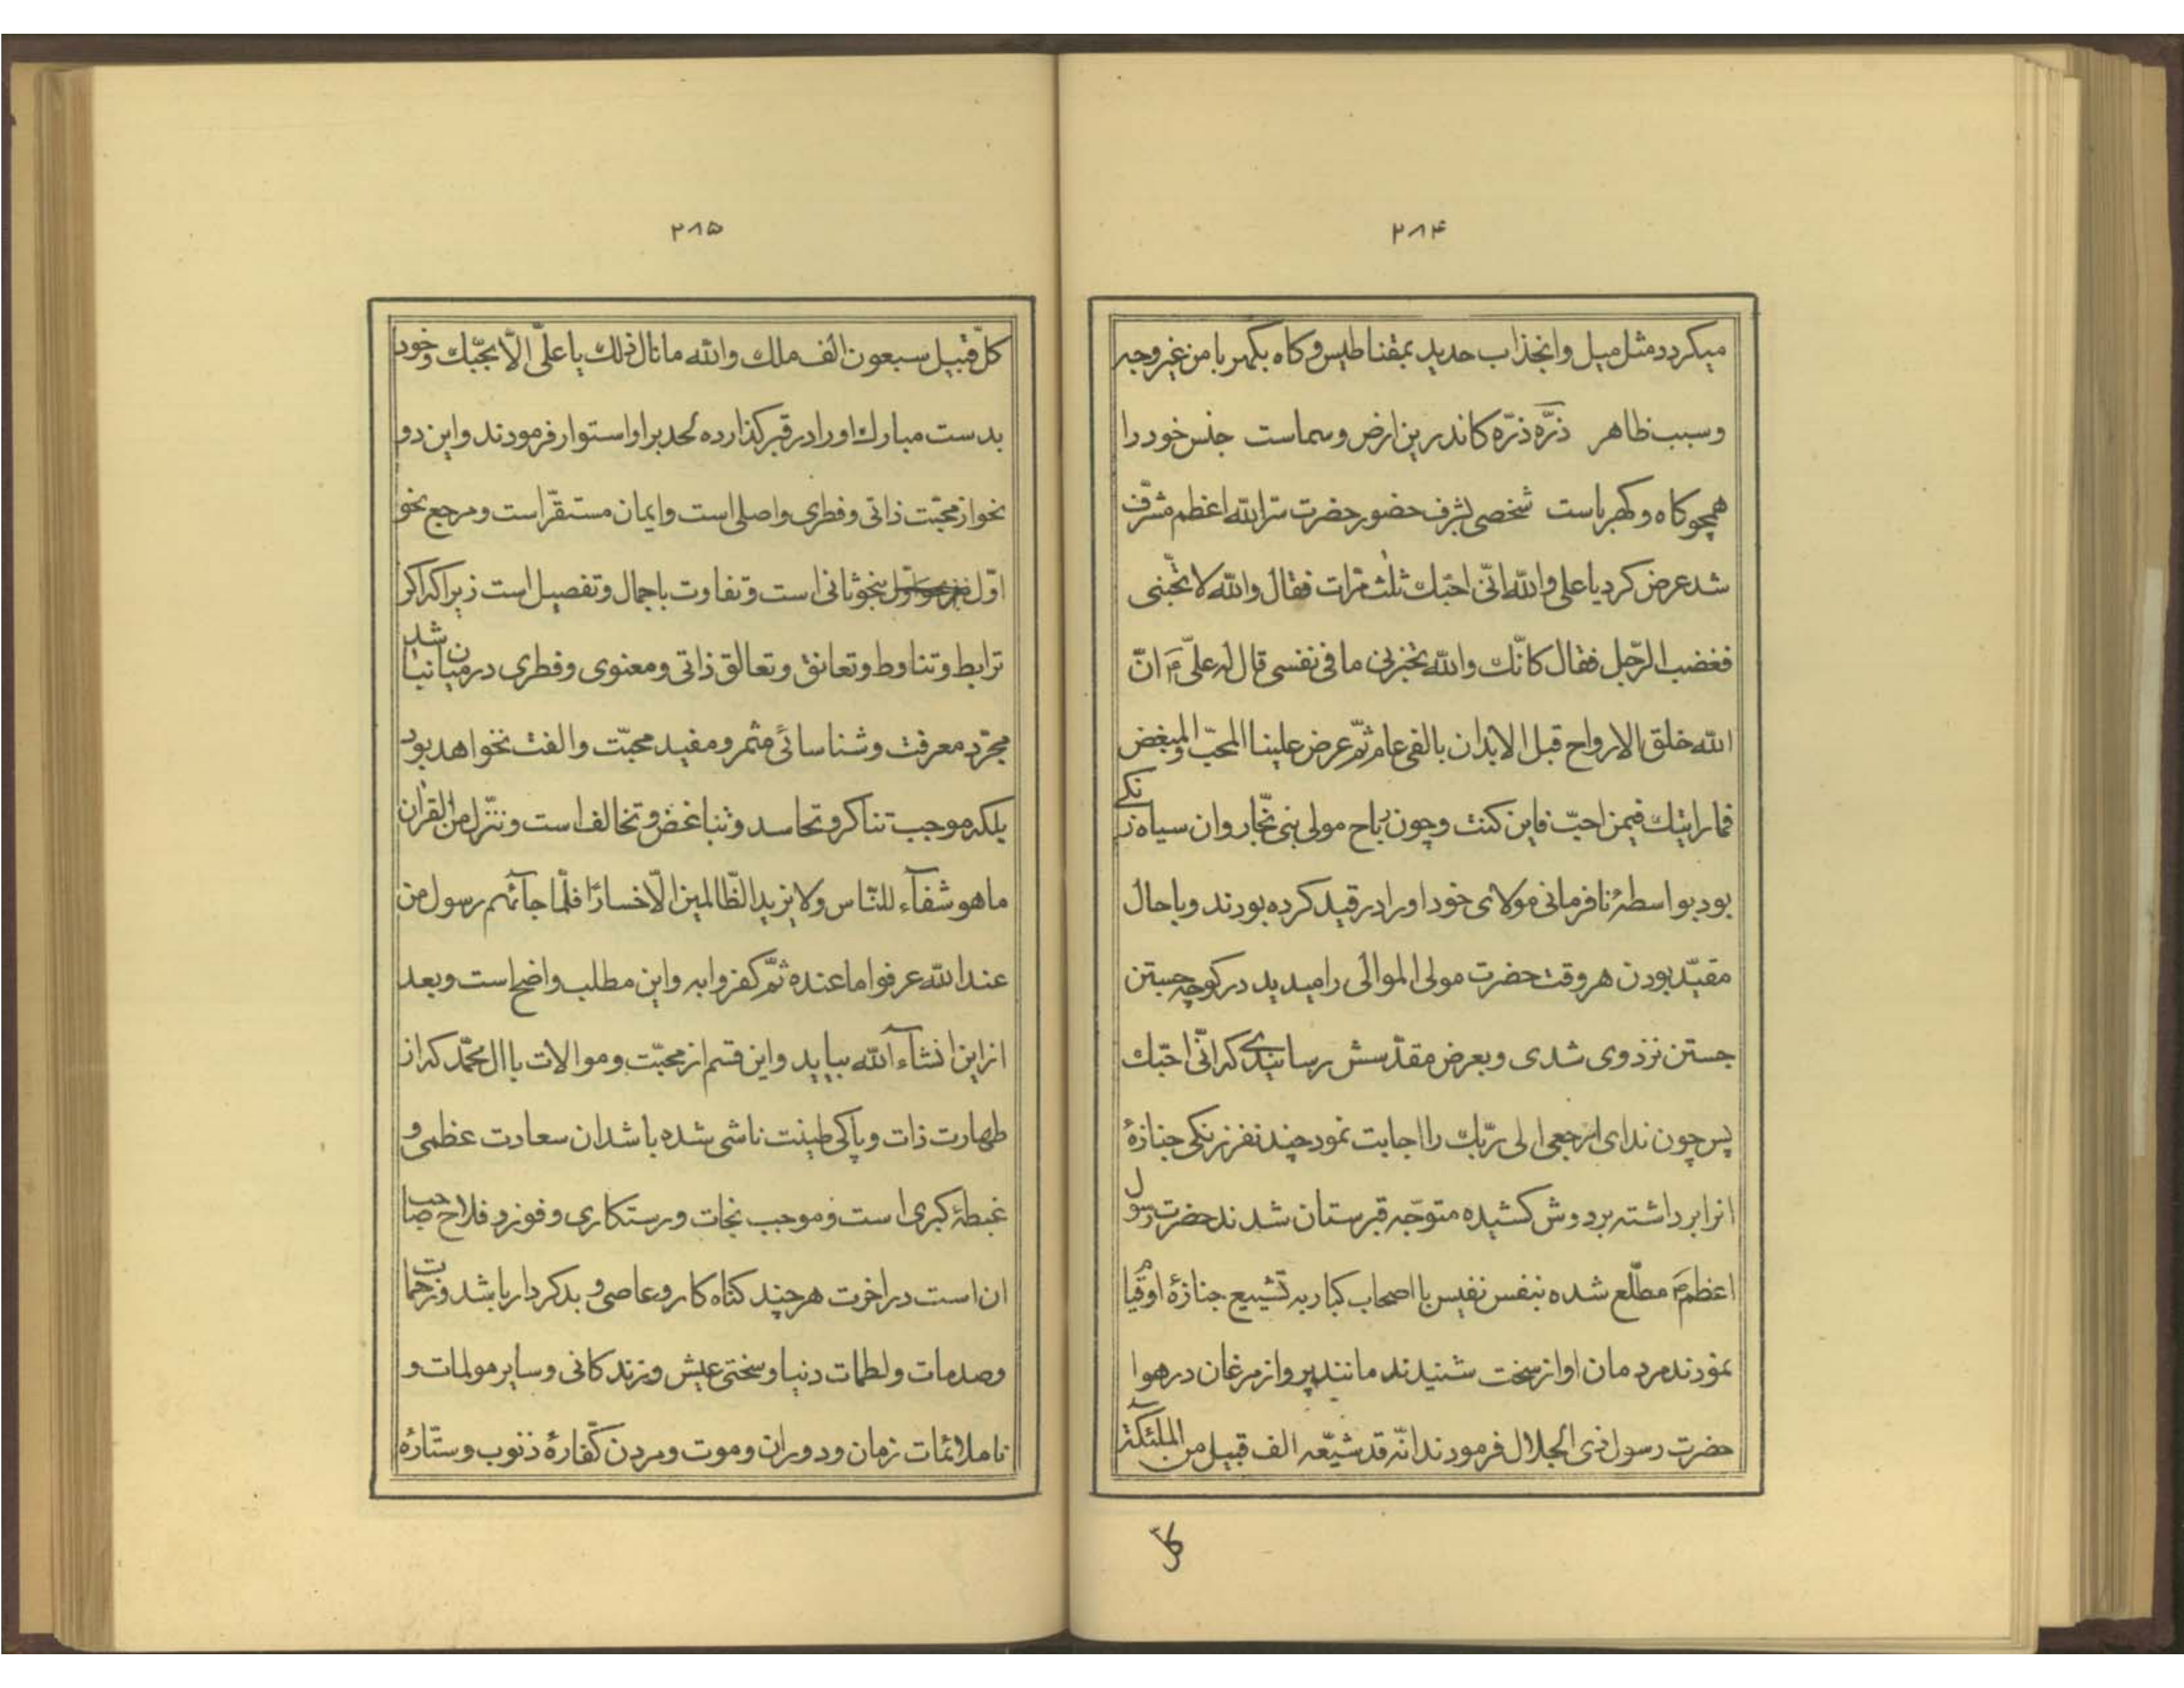 ۲۸۴
میکردد مثل میل وانجذاب حدید بمقناطیس وکاه بکهربا من غیر وجه
وسبب ظاهر ذرّه ذرّه کاندرین ارض وسماست جنس خود را
همچو کاه وکهرباست شخصی بشرف حضور حضرت سرالله اعظم مشرّف
شد عرض کرد یا علی والله انّی احبّک ثلث مرّات فقال والله لا تحّبنی
فغضب الرّجل فقال کانّک والله تخبرنی ما فی نفسی قال له علیّ ع انّ
الله خلق الارواح قبل الابدان بالفی عام ثمّ عرض علینا المحبّ والمبغض
فما رایتک فیمن احبّ فاین کنت وچون رباح مولی بنی نجّار وان سیاه زنکی
بود بواسطهٔ نافرمانی مولای خود او را در قید کرده بودند وباحال
مقیّد بودن هر وقت حضرت مولی الموالی را میدید در کوچه جستن
جستن نزد وی شدی وبعرض مقدّسش رسانیدی که انّی احبّک
پس چون ندای ارجعی الی ربّک را اجابت نمود چند نفر زنکی جنازهٔ
انرا برداشته بر دوش کشیده متوجّه قبرستان شدند حضرت رسول
اعظم ص مطّلع شده بنفس نفیس با اصحاب کبار به تشییع جنازهٔ او قیام
نمودند مردمان اواز سخت شنیدند مانند پرواز مرغان در هوا
حضرت رسول ذی الجلال فرمودند انّه قد شیّعه الف قبیل من الملئکة
کلّ
۲۸۵
کلّ قبیل سبعون الف ملک والله ما نال ذلک یا علیّ الّا بحبّک وخود
بدست مبارک او را در قبر کذارده لحد بر او استوار فرمودند واین دو
نحو از محبّت ذاتی وفطری واصلی است وایمان مستقرّ است ومرجع نحو
اوّل بنحو ثانی است وتفاوت باجمال وتفصیل است زیرا که اکر
ترابط وتناوط وتعانق وتعالق ذاتی ومعنوی وفطری در میان نباشد
مجرّد معرفت وشناسائی مثمر ومفید محبّت والفت نخواهد بود
بلکه موجب تناکر وتحاسد وتباغض وتخالف است وننزّل من القران
ما هو شفآء للنّاس ولا یزید الظّالمین الّا خسارًا فلّما جآئهم رسول من
عند الله عرفوا ما عنده ثمّ کفروا به واین مطلب واضح است وبعد
از این انشآء الله بیاید واین قسم از محبّت وموالات باال محمّد که از
طهارت ذات وپاکی طینت ناشی شده باشد ان سعادت عظمی و
غبطهٔ کبری است وموجب نجات ورستکاری وفوز وفلاح صاحب
ان است در اخرت هر چند کناه کار وعاصی و بدکردار باشد وزحمات
وصدمات ولطمات دنیا وسختی عیش وزندکانی وسایر مولمات و
ناملائمات زمان ودوران وموت ومردن کفّارهٔ ذنوب وستّارهٔ